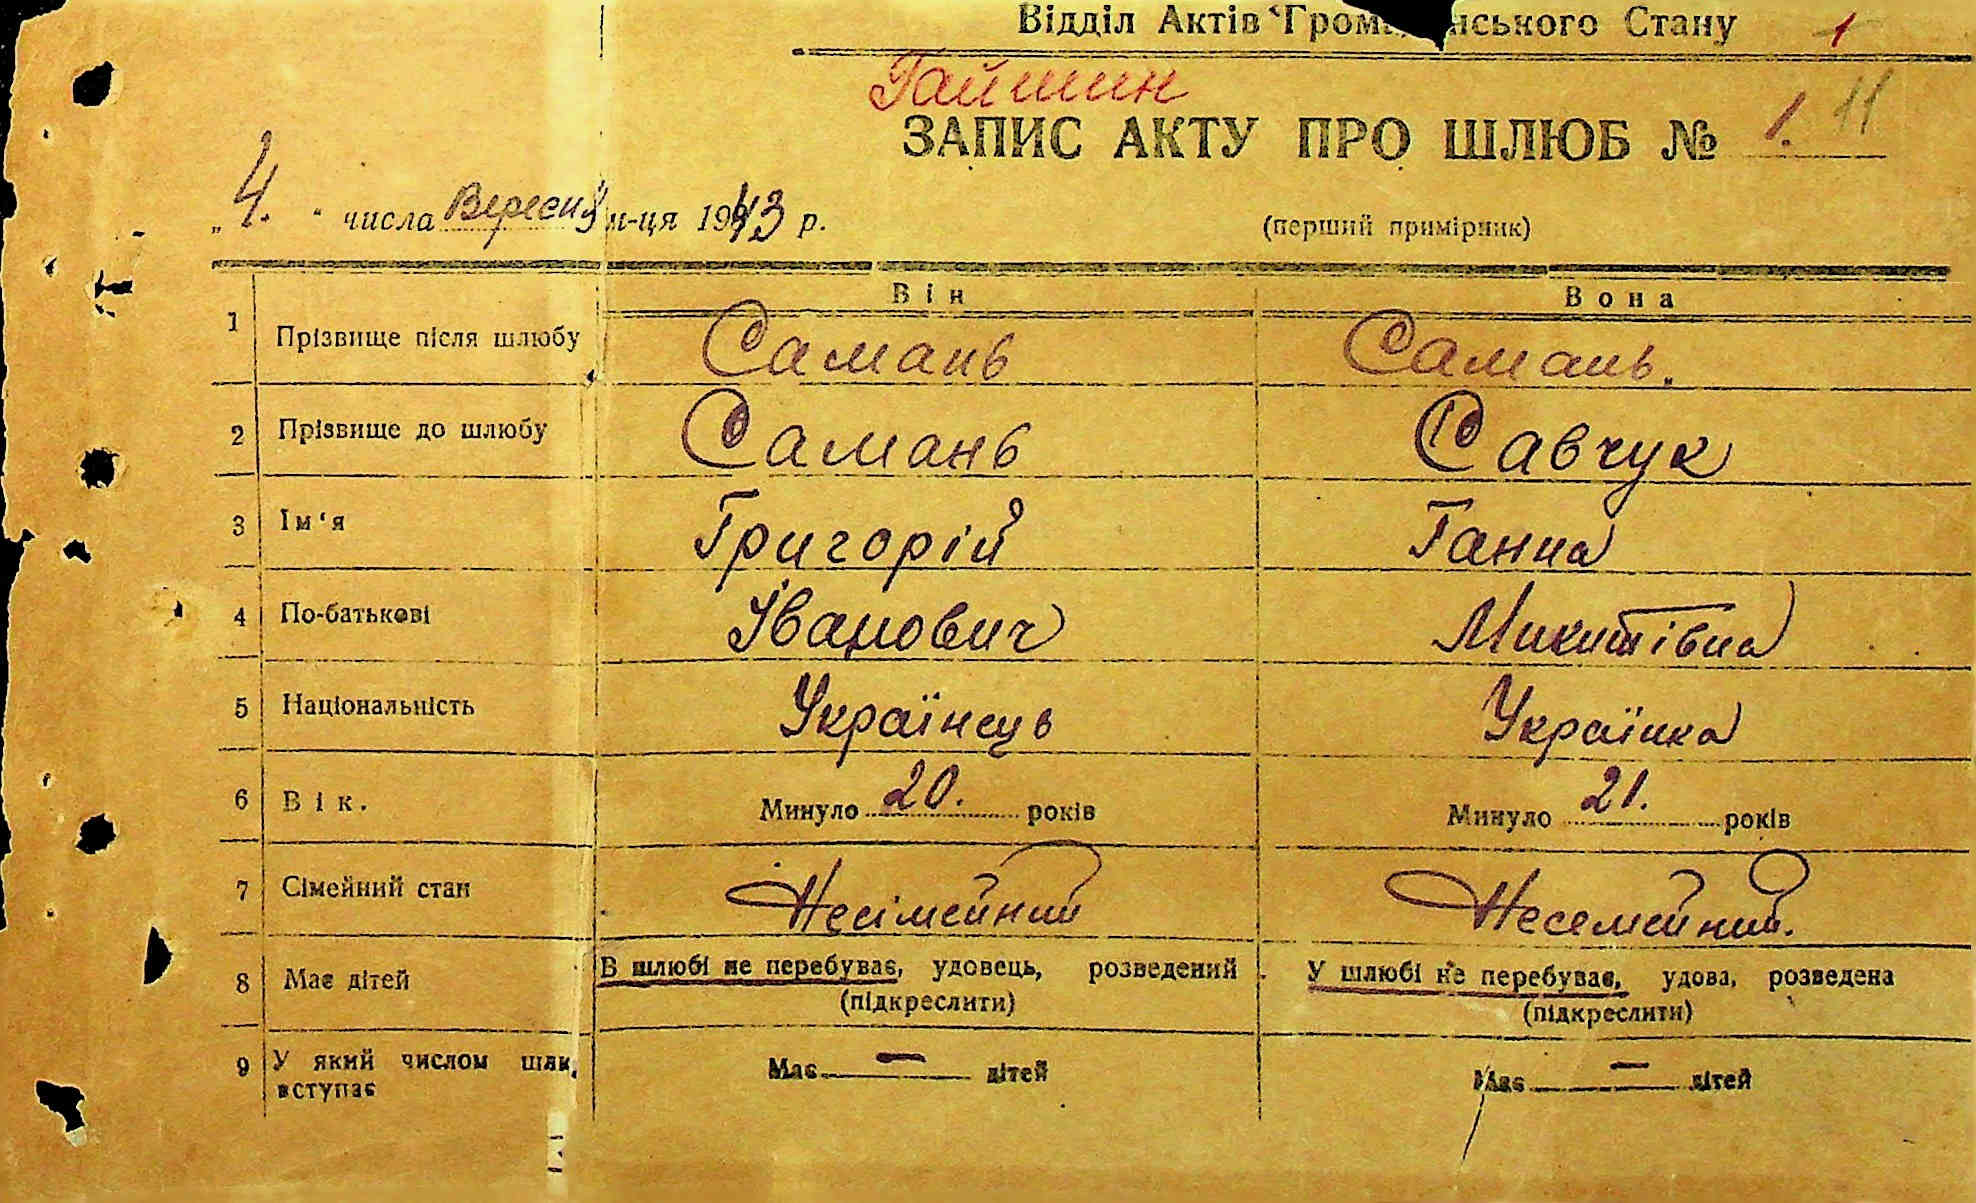 Відділ Актів Гром нського Стану 1
Гайшин
ЗАПИС АКТУ ПРО ШЛЮБ № 1. 11
„4.“ числа Вересня м-ця 1943 р.
(перший примірник)
Він Вона
1 Прізвище після шлюбу Самань Самань.
2 Прізвище до шлюбу Самань Савчук
3 Ім‘я Григорій Ганна
4 По-батькові Іванович Микитівна
5 Національність Українець Українка
6 Вік. Минуло 20. років Минуло 21. років
7 Сімейний стан Несімейний Несемейний.
8 Має дітей В шлюбі не перебуває, удовець, розведений У шлюбі не перебуває, удова, розведена
(підкреслити) (підкреслити)
9 У який числом шлю, Має — дітей Має — дітей
вступає